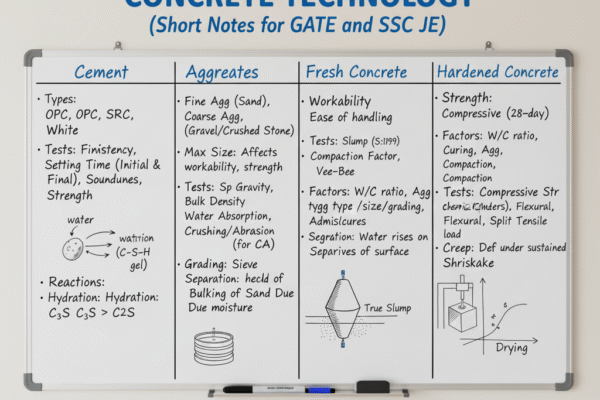 CONCRETE TECHNOLOGY
(Short Notes for GATE and SSC JE)
Cement
• Types:
OPC, OPC, SRC,
White
• Tests: Finistency,
Setting Time (Initial &
Final), Soundunes,
Strength
water
(C-S-H
gel)
• Reactions:
• Hydration: Hydration:
C₃S C₃S > C2S
Aggreates
• Fine Agg (Sand),
Coarse Agg,
(Gravel/Crushed Stone)
• Max Size: Affects
workability, strength
• Tests: Sp Gravity,
Bulk Density
Water Absorption,
Crushing/Abrasion
(for CA)
• Grading: Sieve
Separation: of
Bulking of Sand Due
Due moisture
Fresh Concrete
• Workability
Ease of handling
• Tests: Slump
• Compaction Factor,
Vee-Bee
• Factors: W/C ratio, Agg
tygg type /size/grading,
• Segration: Water rises on
Separives of surface
True Slump
Hardened Concrete
• Strength:
Compressive (28-day)
• Factors: W/C ratio,
Curing, Agg,
Compaction,
Compaction
• Tests: Compressive Str
Flexural,
Flexural, Split Tensile
load
• Creep: Def under sustained
Shriskake
Drying